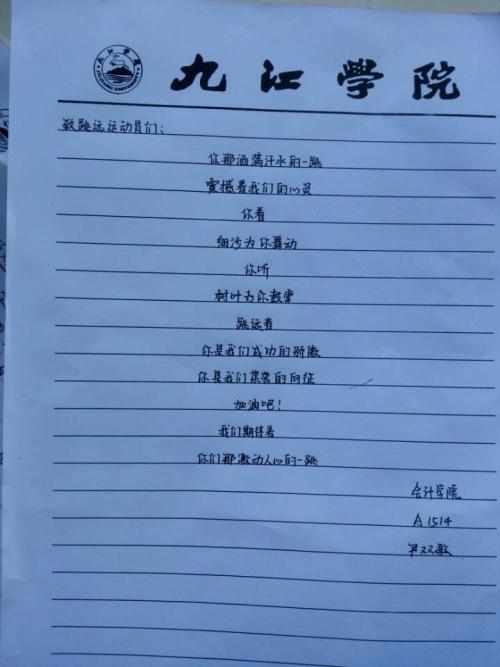 九江学院
九江学院
JIUJIANG UNIVERSITY
致跳远运动员们:
你那洒满汗水的一跳
震撼着我们的心灵
你看
细沙为你舞动
你听
树叶为你歌唱
跳远者
你是我们成功的骄傲
你是我们集体的象征
加油吧!
我们期待着
你们那激动人心的一跳
会计学院
A1514
尹双